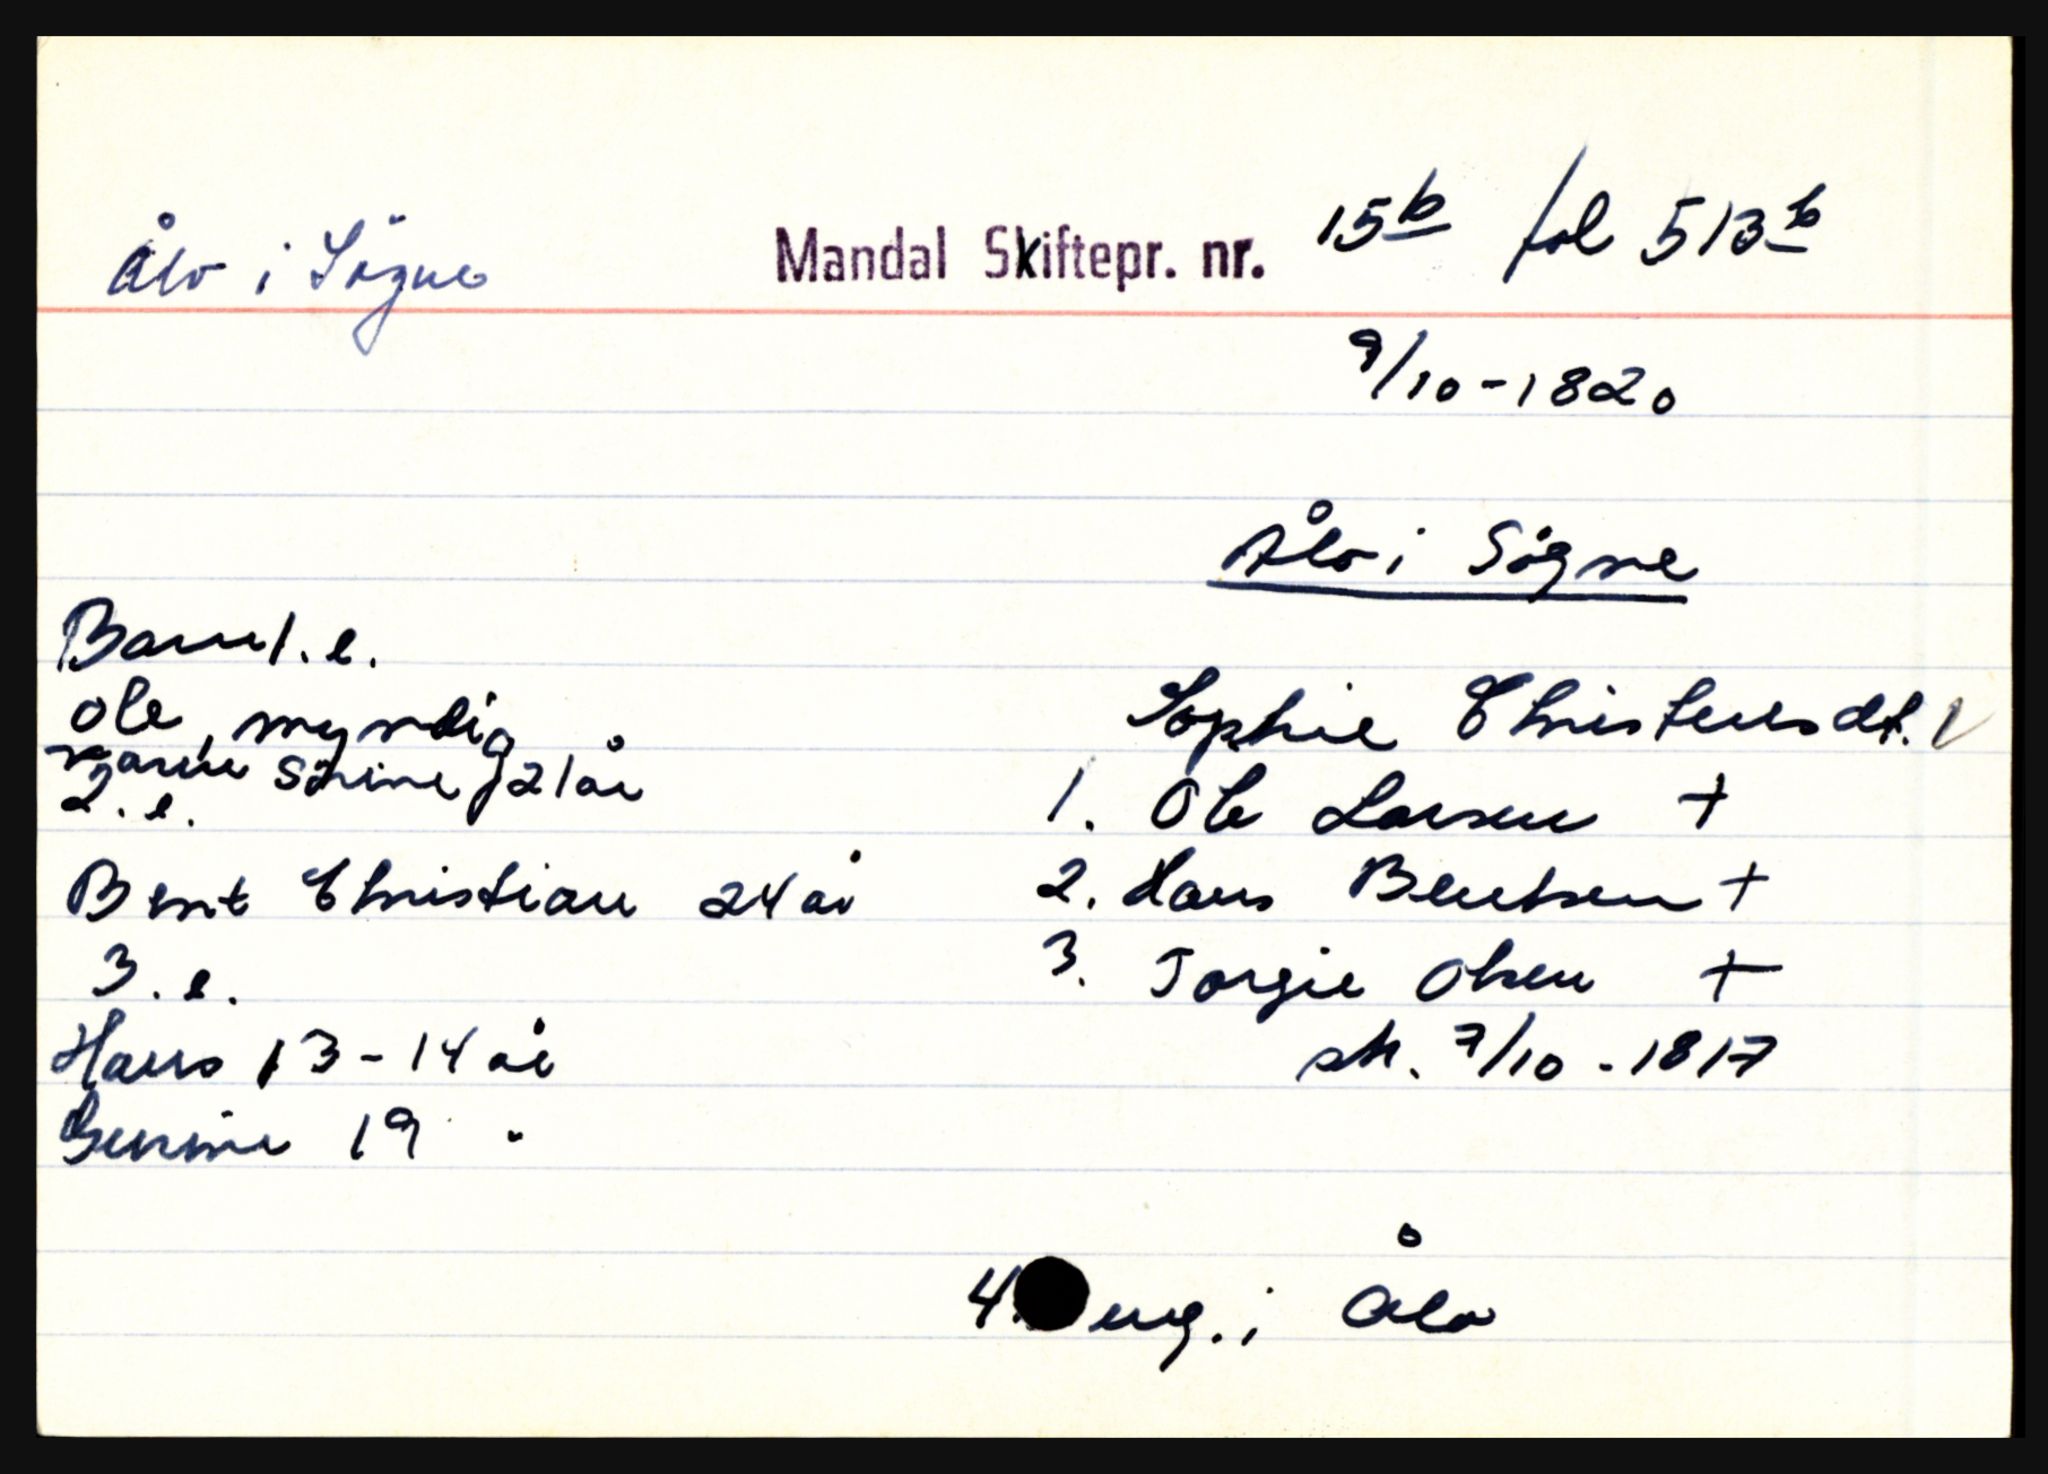 Ålo i Søgne
Mandal Skiftepr. nr. 15b fol 513b
9/10-1820
Ålo i Søgne
Barn 1. e.
Ole, myndig
Karen Serine 21 år
2. e.
Bent Christian 24 år
3. e.
Hans 13-14 år
Gurine 19 "
Sophie Christensdt. V
1. Ole Larsen +
2. Hans Bentsen +
3. Torgie Olsen +
sk. 7/10-1817
4. eng. i Ålo